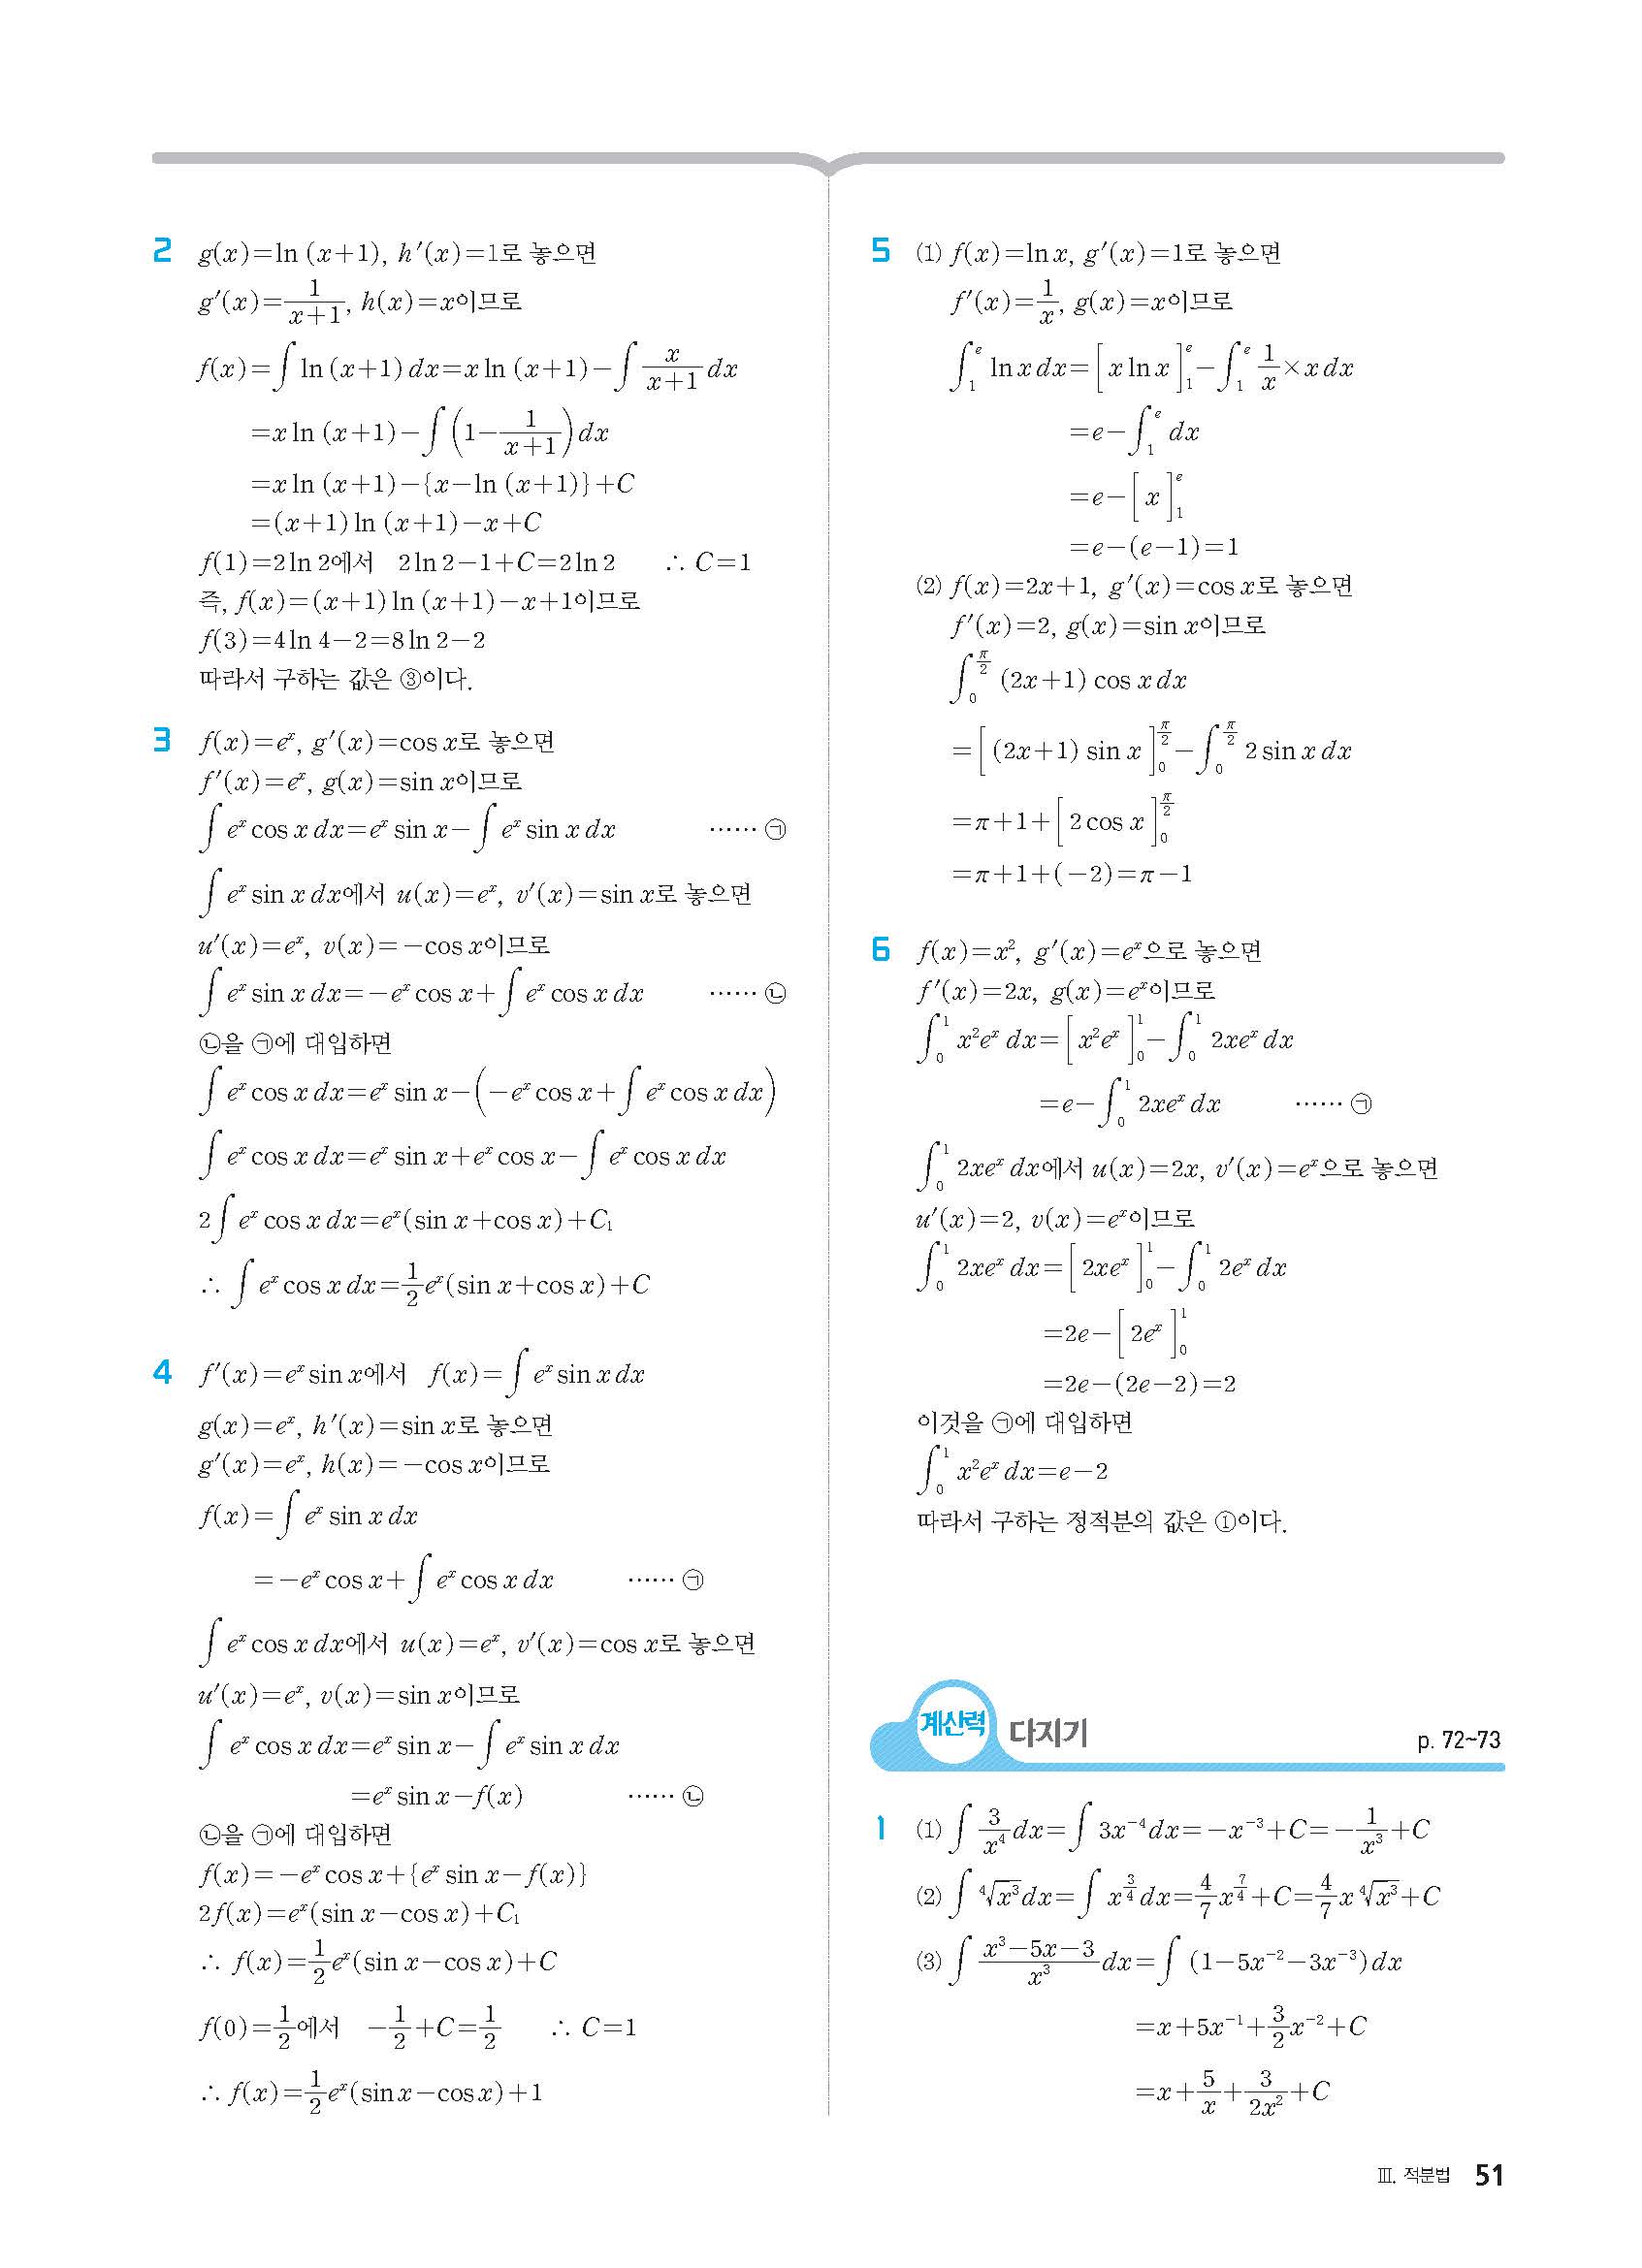 2 g(x)=ln (x+1), h′(x)=1로 놓으면
g′(x)=1/(x+1), h(x)=x이므로
f(x)=∫ ln (x+1) dx=x ln (x+1)-∫ x/(x+1) dx
=x ln (x+1)-∫ (1-1/(x+1))dx
=x ln (x+1)-{x-ln (x+1)}+C
=(x+1) ln (x+1)-x+C
f(1)=2 ln 2에서 2 ln 2-1+C=2 ln 2 ∴ C=1
즉, f(x)=(x+1) ln (x+1)-x+1이므로
f(3)=4 ln 4-2=8 ln 2-2
따라서 구하는 값은 ③이다.
3 f(x)=eˣ, g′(x)=cos x로 놓으면
f′(x)=eˣ, g(x)=sin x이므로
∫ eˣ cos x dx=eˣ sin x-∫ eˣ sin x dx …… ㉠
∫ eˣ sin x dx에서 u(x)=eˣ, v′(x)=sin x로 놓으면
u′(x)=eˣ, v(x)=-cos x이므로
∫ eˣ sin x dx=-eˣ cos x+∫ eˣ cos x dx …… ㉡
㉡을 ㉠에 대입하면
∫ eˣ cos x dx=eˣ sin x-(-eˣ cos x+∫ eˣ cos x dx)
∫ eˣ cos x dx=eˣ sin x+eˣ cos x-∫ eˣ cos x dx
2∫ eˣ cos x dx=eˣ(sin x+cos x)+C₁
∴ ∫ eˣ cos x dx=1/2 eˣ(sin x+cos x)+C
4 f′(x)=eˣ sin x에서 f(x)=∫ eˣ sin x dx
g(x)=eˣ, h′(x)=sin x로 놓으면
g′(x)=eˣ, h(x)=-cos x이므로
f(x)=∫ eˣ sin x dx
=-eˣ cos x+∫ eˣ cos x dx …… ㉠
∫ eˣ cos x dx에서 u(x)=eˣ, v′(x)=cos x로 놓으면
u′(x)=eˣ, v(x)=sin x이므로
∫ eˣ cos x dx=eˣ sin x-∫ eˣ sin x dx
=eˣ sin x-f(x) …… ㉡
㉡을 ㉠에 대입하면
f(x)=-eˣ cos x+{eˣ sin x-f(x)}
2f(x)=eˣ(sin x-cos x)+C₁
∴ f(x)=1/2 eˣ(sin x-cos x)+C
f(0)=1/2에서 -1/2+C=1/2 ∴ C=1
∴ f(x)=1/2 eˣ(sin x-cos x)+1
5 ⑴ f(x)=ln x, g′(x)=1로 놓으면
f′(x)=1/x, g(x)=x이므로
∫₁ᵉ ln x dx=[x ln x]₁ᵉ-∫₁ᵉ 1/x×x dx
=e-∫₁ᵉ dx
=e-[x]₁ᵉ
=e-(e-1)=1
⑵ f(x)=2x+1, g′(x)=cos x로 놓으면
f′(x)=2, g(x)=sin x이므로
∫_0^(π/2) (2x+1) cos x dx
=[(2x+1) sin x]_0^(π/2)-∫_0^(π/2) 2 sin x dx
=π+1+[2 cos x]_0^(π/2)
=π+1+(-2)=π-1
6 f(x)=x², g′(x)=eˣ으로 놓으면
f′(x)=2x, g(x)=eˣ이므로
∫₀¹ x²eˣ dx=[x²eˣ]₀¹-∫₀¹ 2xeˣ dx
=e-∫₀¹ 2xeˣ dx …… ㉠
∫₀¹ 2xeˣ dx에서 u(x)=2x, v′(x)=eˣ으로 놓으면
u′(x)=2, v(x)=eˣ이므로
∫₀¹ 2xeˣ dx=[2xeˣ]₀¹-∫₀¹ 2eˣ dx
=2e-[2eˣ]₀¹
=2e-(2e-2)=2
이것을 ㉠에 대입하면
∫₀¹ x²eˣ dx=e-2
따라서 구하는 정적분의 값은 ①이다.
계산력 다지기 p. 72~73
1 ⑴ ∫ 3/x⁴ dx=∫ 3x⁻⁴dx=-x⁻³+C=-1/x³+C
⑵ ∫ ⁴√x³ dx=∫ x^(3/4) dx=4/7 x^(7/4)+C=4/7 x ⁴√x³+C
⑶ ∫ (x³-5x-3)/x³ dx=∫ (1-5x⁻²-3x⁻³)dx
=x+5x⁻¹+3/2 x⁻²+C
=x+5/x+3/(2x²)+C
Ⅲ. 적분법 51